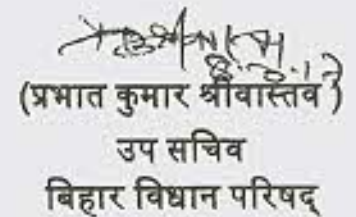 (प्रभात कुमार श्रीवास्तव)
उप सचिव
बिहार विधान परिषद्